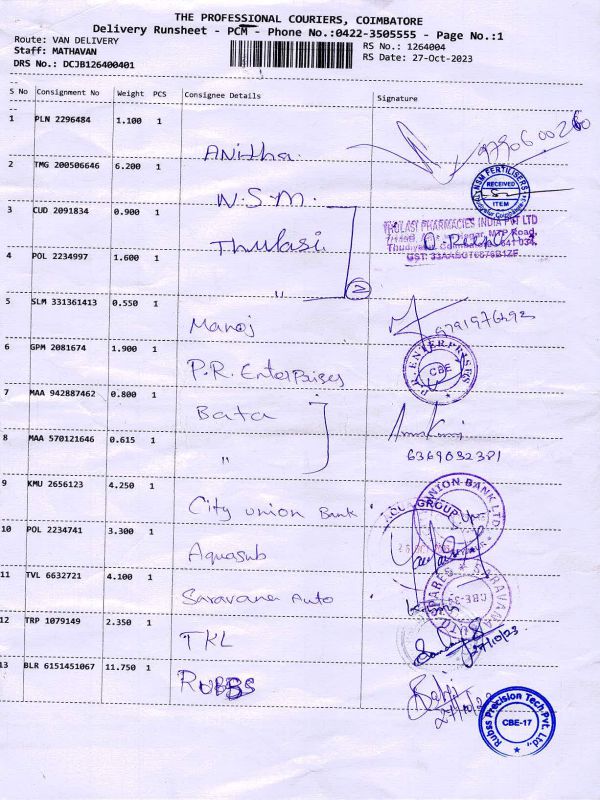 THE PROFESSIONAL COURIERS, COIMBATORE
Delivery Runsheet - PCM - Phone No.:0422-3505555 - Page No.:1
Route: VAN DELIVERY
Staff: MATHAVAN
DRS No.: DCJB126400401
RS No.: 1264004
RS Date: 27-Oct-2023
S No Consignment No Weight PCS Consignee Details Signature
1 PLN 2296484 1.100 1 Anitha
2 TMG 200506646 6.200 1 N.S.M.
NSM FERTILISERS
RECEIVED
ITEM
3 CUD 2091834 0.900 1 Thulasi
THULASI PHARMACIES INDIA PVT LTD
4 POL 2234997 1.600 1 "
2
5 SLM 331361413 0.550 1 Manoj
6 GPM 2081674 1.900 1 P.R. Enterprises
P.R. ENTERPRISES
CBE
7 MAA 942887462 0.800 1 Bata
8 MAA 570121646 0.615 1 " 6369032381
9 KMU 2656123 4.250 1 City union Bank
UNION BANK LTD.
GROUP
10 POL 2234741 3.300 1 Aquasub
11 TVL 6632721 4.100 1 Saravana Auto
SARAVANA
12 TRP 1079149 2.350 1 TKL 27/10/23
13 BLR 6151451067 11.750 1 RUBBS
Rubss Precision Tech Pvt. Ltd.,
CBE-17